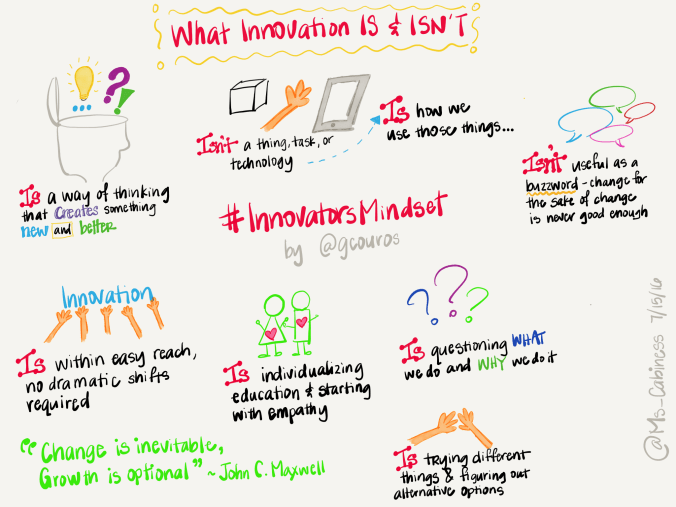 What Innovation IS & ISN'T
Is a way of thinking
that Creates something
new and better
Isn't a thing, task, or
technology
Is how we
use those things...
Isn't useful as a
buzzword - change for
the sake of change
is never good enough
#InnovatorsMindset
by @gcouros
Innovation
Is within easy reach,
no dramatic shifts
required
Is individualizing
education & starting
with empathy
Is questioning WHAT
we do and WHY we do it
Is trying different
things & figuring out
alternative options
"Change is inevitable,
Growth is optional" ~ John C. Maxwell
@Ms_Cabiness 7/15/16